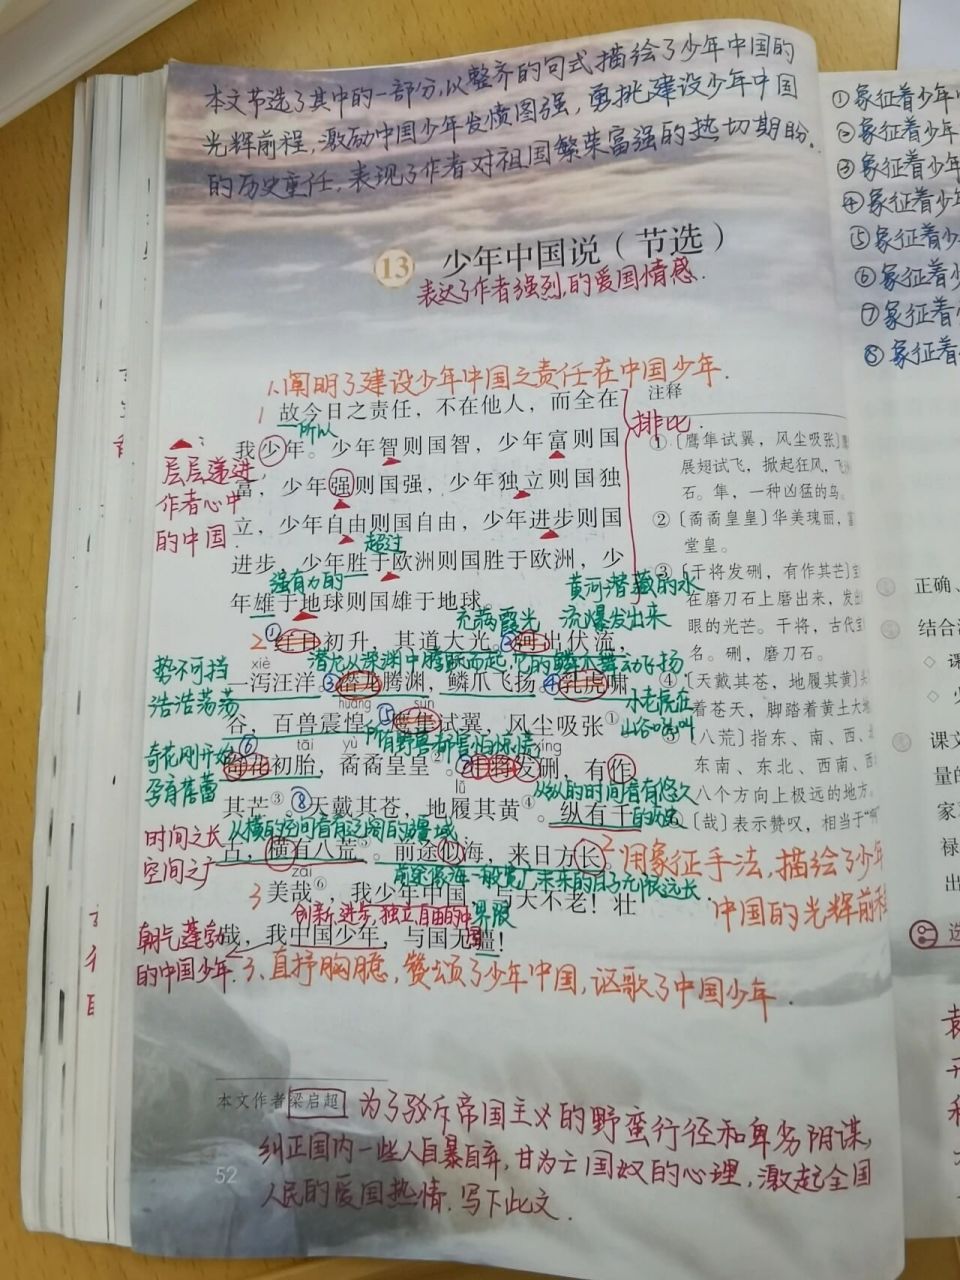 本文节选了其中的一部分,以整齐的句式描绘了少年中国的
光辉前程,激励中国少年发愤图强,勇挑建设少年中国
的历史重任,表现了作者对祖国繁荣富强的热切期盼.
13 少年中国说（节选）
表达了作者强烈的爱国情感.
1.阐明了建设少年中国之责任在中国少年.
1 故今日之责任，不在他人，而全在
所以
我少年。少年智则国智，少年富则国
富，少年强则国强，少年独立则国独
立，少年自由则国自由，少年进步则国
超过
进步，少年胜于欧洲则国胜于欧洲，少
强有力的
年雄于地球则国雄于地球。
排比.
层层递进,
作者心中
的中国
黄河潜藏的水
充满霞光 流爆发出来
2 ①红日初升，其道大光。②河出伏流，
潜龙从深渊中腾跃而起,它的鳞爪舞动飞扬
xiè
一泻汪洋。③潜龙腾渊，鳞爪飞扬。④乳虎啸
势不可挡
浩浩荡荡
小老虎在
山谷吼叫
huáng sǔn
谷，百兽震惶。⑤鹰隼试翼，风尘吸张①。
所有野兽都害怕惊慌
tāi yù xíng
⑥奇花初胎，矞矞皇皇②。干将发硎，有作
奇花刚开始
孕育蓓蕾
lǚ
其芒③。⑧天戴其苍，地履其黄④。纵有千
从纵的时间看有悠久
的
从横的空间看有辽阔的疆域
古，横有八荒⑤。前途似海，来日方长。
时间之长
空间之广
前途像海一般宽广未来的日子无限远长
2 用象征手法,描绘了少年
中国的光辉前程
zāi
3 美哉⑥，我少年中国，与天不老！壮
创新、进步、独立自由的中国
界限
哉，我中国少年，与国无疆！
朝气蓬勃
的中国少年.
3、直抒胸臆,赞颂了少年中国,讴歌了中国少年.
本文作者梁启超
为了驳斥帝国主义的野蛮行径和卑劣阴谋,
纠正国内一些人自暴自弃,甘为亡国奴的心理,激起全国
人民的爱国热情.写下此文.
52
注释
①〔鹰隼试翼，风尘吸张〕
展翅试飞，掀起狂风，飞
石。隼，一种凶猛的鸟。
②〔矞矞皇皇〕华美瑰丽，富
堂皇。
③〔干将发硎，有作其芒〕宝
在磨刀石上磨出来，发出
眼的光芒。干将，古代宝
名。硎，磨刀石。
④〔天戴其苍，地履其黄〕头
着苍天，脚踏着黄土大地
⑤〔八荒〕指东、南、西、北
东南、东北、西南、西
八个方向上极远的地方。
〔哉〕表示赞叹，相当于“啊
①象征着少年
②象征着少年
③象征着少年
④象征着少年
⑤象征着少
⑥象征着少
⑦象征着
⑧象征着
正确、
结合
课文
量的
家
禄
出
选